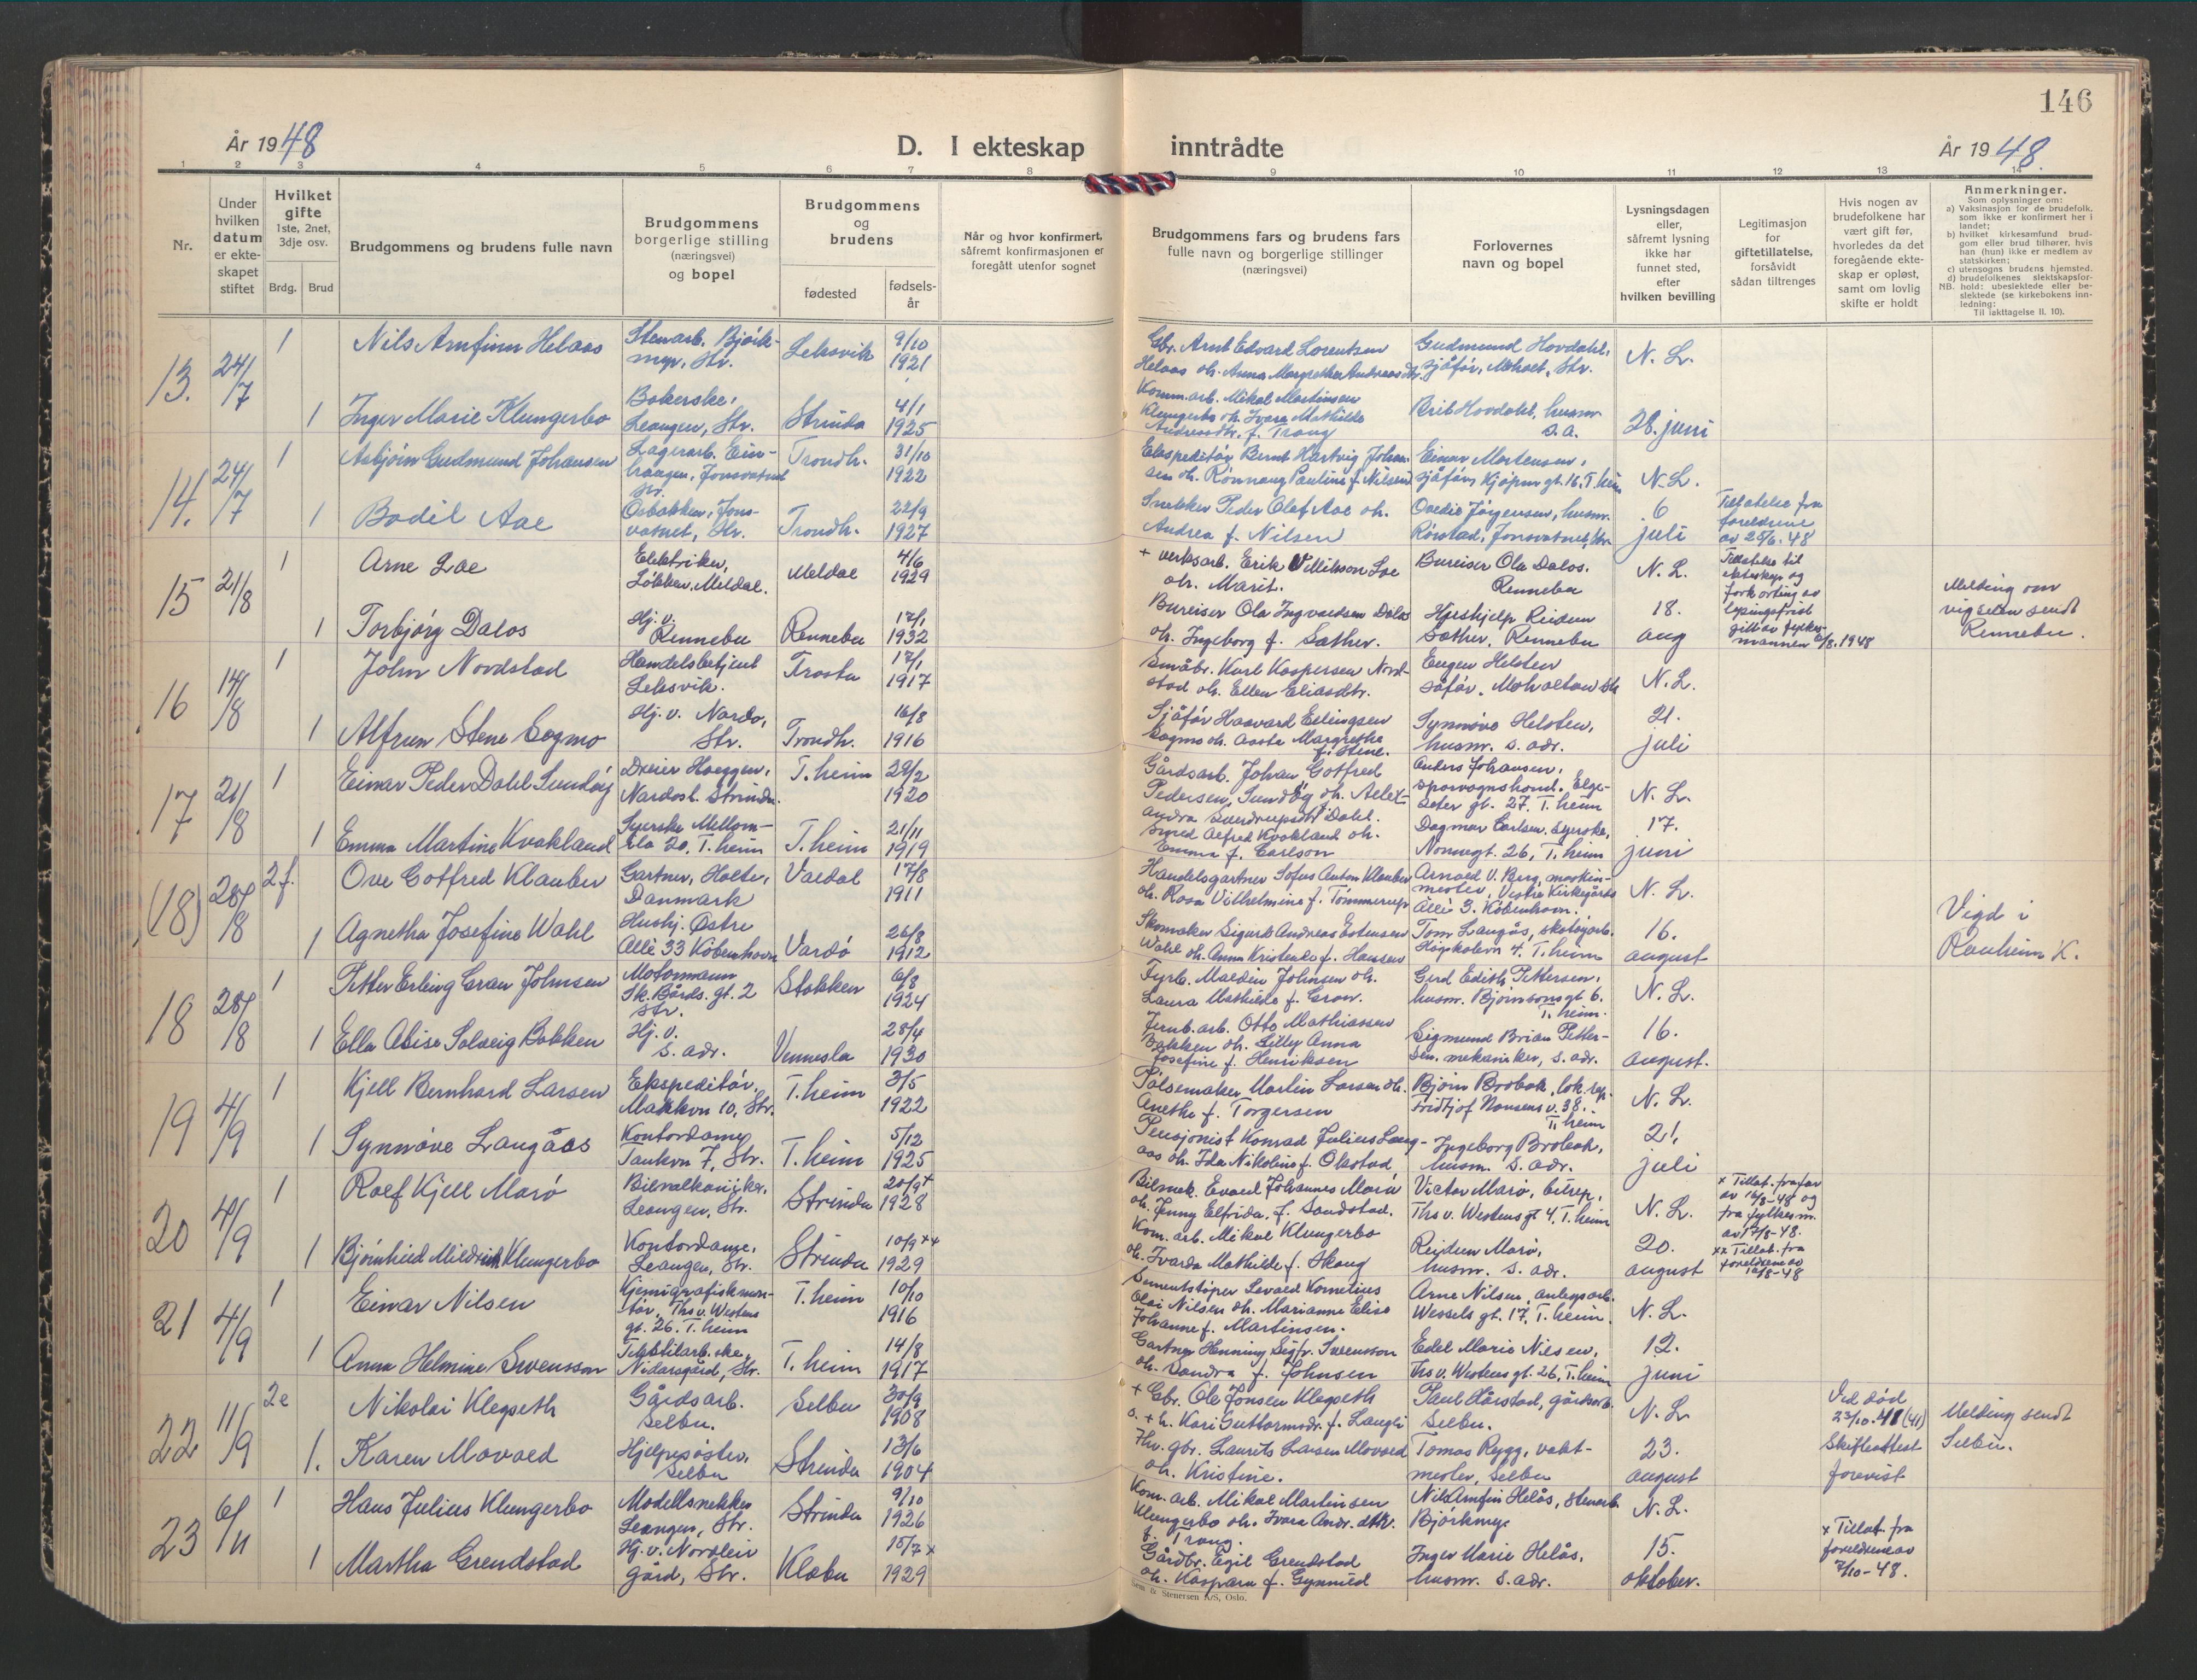 146
År 1948
D. I ekteskap inntrådte
År 1948.
1 2 3 4 5 6 7 8 9 10 11 12 13 14
Nr.
Under hvilken datum er ekteskapet stiftet
Hvilket gifte 1ste, 2net, 3dje osv.
Brdg. Brud
Brudgommens og brudens fulle navn
Brudgommens borgerlige stilling (næringsvei) og bopel
Brudgommens og brudens
fødested
fødselsår
Når og hvor konfirmert, såfremt konfirmasjonen er foregått utenfor sognet
Brudgommens fars og brudens fars fulle navn og borgerlige stillinger (næringsvei)
Forlovernes navn og bopel
Lysningsdagen eller, såfremt lysning ikke har funnet sted, efter hvilken bevilling
Legitimasjon for giftetillatelse, forsåvidt sådan tiltrenges
Hvis nogen av brudefolkene har vært gift før, hvorledes da det foregående ekteskap er opløst, samt om lovlig skifte er holdt
Anmerkninger.
Som oplysninger om:
a) Vaksinasjon for de brudefolk, som ikke er konfirmert her i landet;
b) hvilket kirkesamfund brudgom eller brud tilhører, hvis han (hun) ikke er medlem av statskirken;
c) utensogns brudens hjemsted.
d) brudefolkenes slektskapsforhold: ubeslektede eller beslektede (se kirkebokens innledning:
NB.
Til iakttagelse II. 10).
13. 24/7 1 Nils Arnfinn Helaas Stenarb. Bjørkmyr, Str. Leksvik 9/10 1921
Gbr. Arnt Edvard Lorentsen Helaas oh. Anna Margrethe Andreasdtr. Gudmund Hovdahl, sjåfør, Moholt, Str. N. L.
1 Inger Marie Klungerbo Bakerske, Leangen, Str. Strinda 4/1 1925
Komm.arb. Mikal Martinsen Klungerbo oh. Ivara Mathilde Andreasdtr. f. Trang Brit Hovdahl, husm. s.a. 28. juni
14. 24/7 1 Asbjørn Gudmund Johansen Lagerarb. Einhaugen, Jonsvatnet Str. Trondh. 31/10 1922
Ekspeditør Bernt Hartvig Johansen oh. Rønnaug Pauline f. Nilsen Einar Mortensen, sjåfør, Kjøpm.gt. 16, T.heim N. L.
1 Bodil Aae Osbakken, Jonsvatnet, Str. Trondh. 22/9 1927
Snekker Peder Olaf Aae oh. Andrea f. Nilsen Ovedie Jørgensen, husm. Rønstad, Jonsvatnet, Str. 6 juli Tillatelse fra foreldrene av 25/6. 48
15 21/8 1 Arne Loe Elektriker, Løkken, Meldal. Meldal 4/6 1929
+ verksarb. Erik Loe oh. Marit. Bureiser Ola Dalos. Rennebu N. L. Tillatelse til ekteskap og forkorting av lysingsfrist gitt av fylkesmannen /8. 1948
1 Torbjørg Dalos Hj. v. Rennebu Rennebu 17/1 1932
Bureiser Ola Ingvaldsen Dalos oh. Ingeborg f. Sæther. Hjelp Reidun Sæther, Rennebu 18. aug Melding om vigselen sendt Rennebu.
16 14/8 1 John Nordstad Handelsbetjent Leksvik. Frosta 17/1 1917
Småbr. Karl Kaspersen Nordstad oh. Ellen Eliasdtr. Eugen Helsten sjåfør, Moholtan Str. N. L.
1 Alfrun Stene Sogmo Hj. v. Nardo, Str. Trondh. 16/8 1916
Sjåfør Haavard Erlingsen Sogmo oh. Aasta Margrethe f. Stene. Synnøve Helsten, husm. s. adr. 21. juli
17 21/8 1 Einar Peder Dahl Sundøy Dreier Hoeggen, Nardosl. Strinda. T.heim 29/2 1920
Gårdsarb. Johan Gotfred Pedersen Sundøy oh. Alexandra Sverdrupsdtr Dahl. Anders Johansen, sporvognskond. Elgeseter gt. 27. T.heim N. L.
1 Emma Martine Kvakland Syerske Mellomila 20, T.heim T.heim 21/11 1919
Smed Alfred Kvakland oh. Emma f. Carlson Dagmar Carlsen, syerske, Nonnegt. 26, T.heim 17. juni
(18) 28/8 2 f. Ove Gotfred Klauber Gartner, Holte, Danmark Valdal 17/8 1911
Handelsgartner Sofus Anton Klauber oh. Rosa Vilhelmine f. Tømmerup Arnold V. Berg, maskinmester, Vestre Kirkegårds Allé 3. København. N. L.
1 Agnetha Josefine Wahl Hushj. Østre Allé 33 København Vardø 26/8 1912
Skomaker Sigurd Andreas Estensen Wahl oh. Anna Kristense f. Hansen Tom Langås, skotøyarb. Høgskolevn 4. T.heim 16. august Vigd i Ranheim K.
18 28/8 1 Petter Erling Gran Johnsen Motormann Sk. Bårds. gt. 2 Str. Stokken 6/8 1924
Fyrb. Maldin Johnsen oh. Laura Mathilde f. Gran. Gerd Edith Pettersen, husm. Bjørnsonsgt 6. T.heim. N. L.
1 Ella Alise Solveig Bakken Hj. v. s. adr. Vennesla 28/4 1930
Jernb.arb. Otto Mathiassen Bakken oh. Lilly Anna Josefine f. Henriksen Sigmund Brian Pettersen, mekaniker, s. adr. 16. august.
19 4/9 1 Kjell Bernhard Larsen Ekspeditør, Makkvn 10, Str. T.heim 3/5 1922
Pølsemaker Martin Larsen oh. Anethe f. Torgersen Bjørn Brobak, lok.rep. Fridtjof Nansens v. 38. T.heim N. L.
1 Synnøve Langåas Kontordame Taukvn 7, Str. T.heim 5/12 1925
Pensjonist Konrad Julius Langaas oh. Ida Nikoline f. Olastad, Ingeborg Brobak, husm. s. adr. 21. juli
20 4/9 1 Rolf Kjell Marø Bilvalkaniker, Leangen, Str. Strinda 20/9+ 1928
Bilmek. Evald Johannes Marø oh. Jenny Elfrida f. Sandstad. Victor Marø, bilrep, Ths v. Westens gt 4, T.heim N. L. x Tillat. fra far av 16/8-48 og fra fylkesm. av 17/8-48.
1 Bjørnhild Mildrid Klungerbo Kontordame, Leangen, Str. Strinda 10/9 ++ 1929
Kom. arb. Mikal Klungerbo oh. Ivarda Mathilde f. Skaug Reidun Marø, husm. s. adr. 20. august xx Tillat. fra foreldrene av 16/8-48
21 4/9 1 Einar Nilsen Kjemigrafiskmontør, Ths v. Westens gt. 26. T.heim T.heim 10/10 1916
Sementstøper Levald Kornelius Olai Nilsen oh. Marianne Elise Johanne f. Martinsen. Arne Nilsen, anlegsarb. Wessels gt. 17, T.heim. N. L.
1 Anna Helmine Swensson Tekstilarb.ske, Nidarsgård, Str. T.heim 14/8 1917
Gartner Henning Sigfr. Svensson oh. Sandra f. Johnsen Edel Marie Nilsen, Ths v. Westens gt. 26, T.heim 12. juni
22 11/9 2e Nikolai Klegseth Gårdsarb. Selbu. Selbu 30/9 1908
+ Gbr. Ole Jonsen Klegseth o. + h. Kari Guttormsdr. f. Langli Paul Hårstad, gårdsarb. Selbu. N. L. Ved død 23/10. 41 (41) Skifteattest forevist Melding sendt Selbu.
1. Karen Movold Hjelpesøster, Selbu Strinda 13/6 1904
Fhv. gbr. Laurits Larsen Movold oh. Kristine. Tomas Rygg, vaktmester, Selbu 23. august
23 6/11 1 Hans Julius Klungerbo Modellsnekker Leangen, Str. Strinda 9/10 1926
Kom. arb. Mikal Martinsen Klungerbo oh. Ivara Andr. dttr. f. Trang. Nils Arnfin Helås, stenarb. Bjørkmyr N. L.
1 Martha Grendstad Hj. v. Nordleir gård, Str. Klæbu 15/7 x 1929
Gårdbr. Egil Grendstad oh. Kaspara f. Gynnild Inger Marie Helås, husm. s. adr. 15. oktober. x Tillat. fra foreldrene av 7/10-48.
Sem & Stenersen A/S, Oslo.